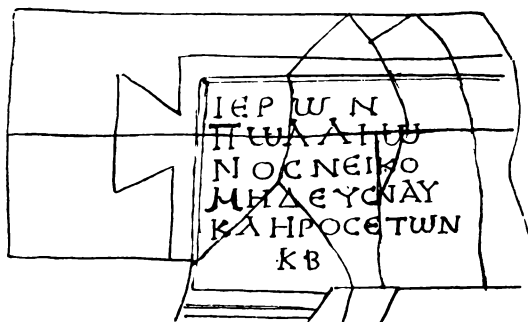 ΙΕΡΩΝ
ΠΩΛΛΙΩ
ΝΟϹΝΕΙΚΟ
ΜΗΔΕΥϹΝΑΥ
ΚΛΗΡΟϹΕΤΩΝ
ΚΒ